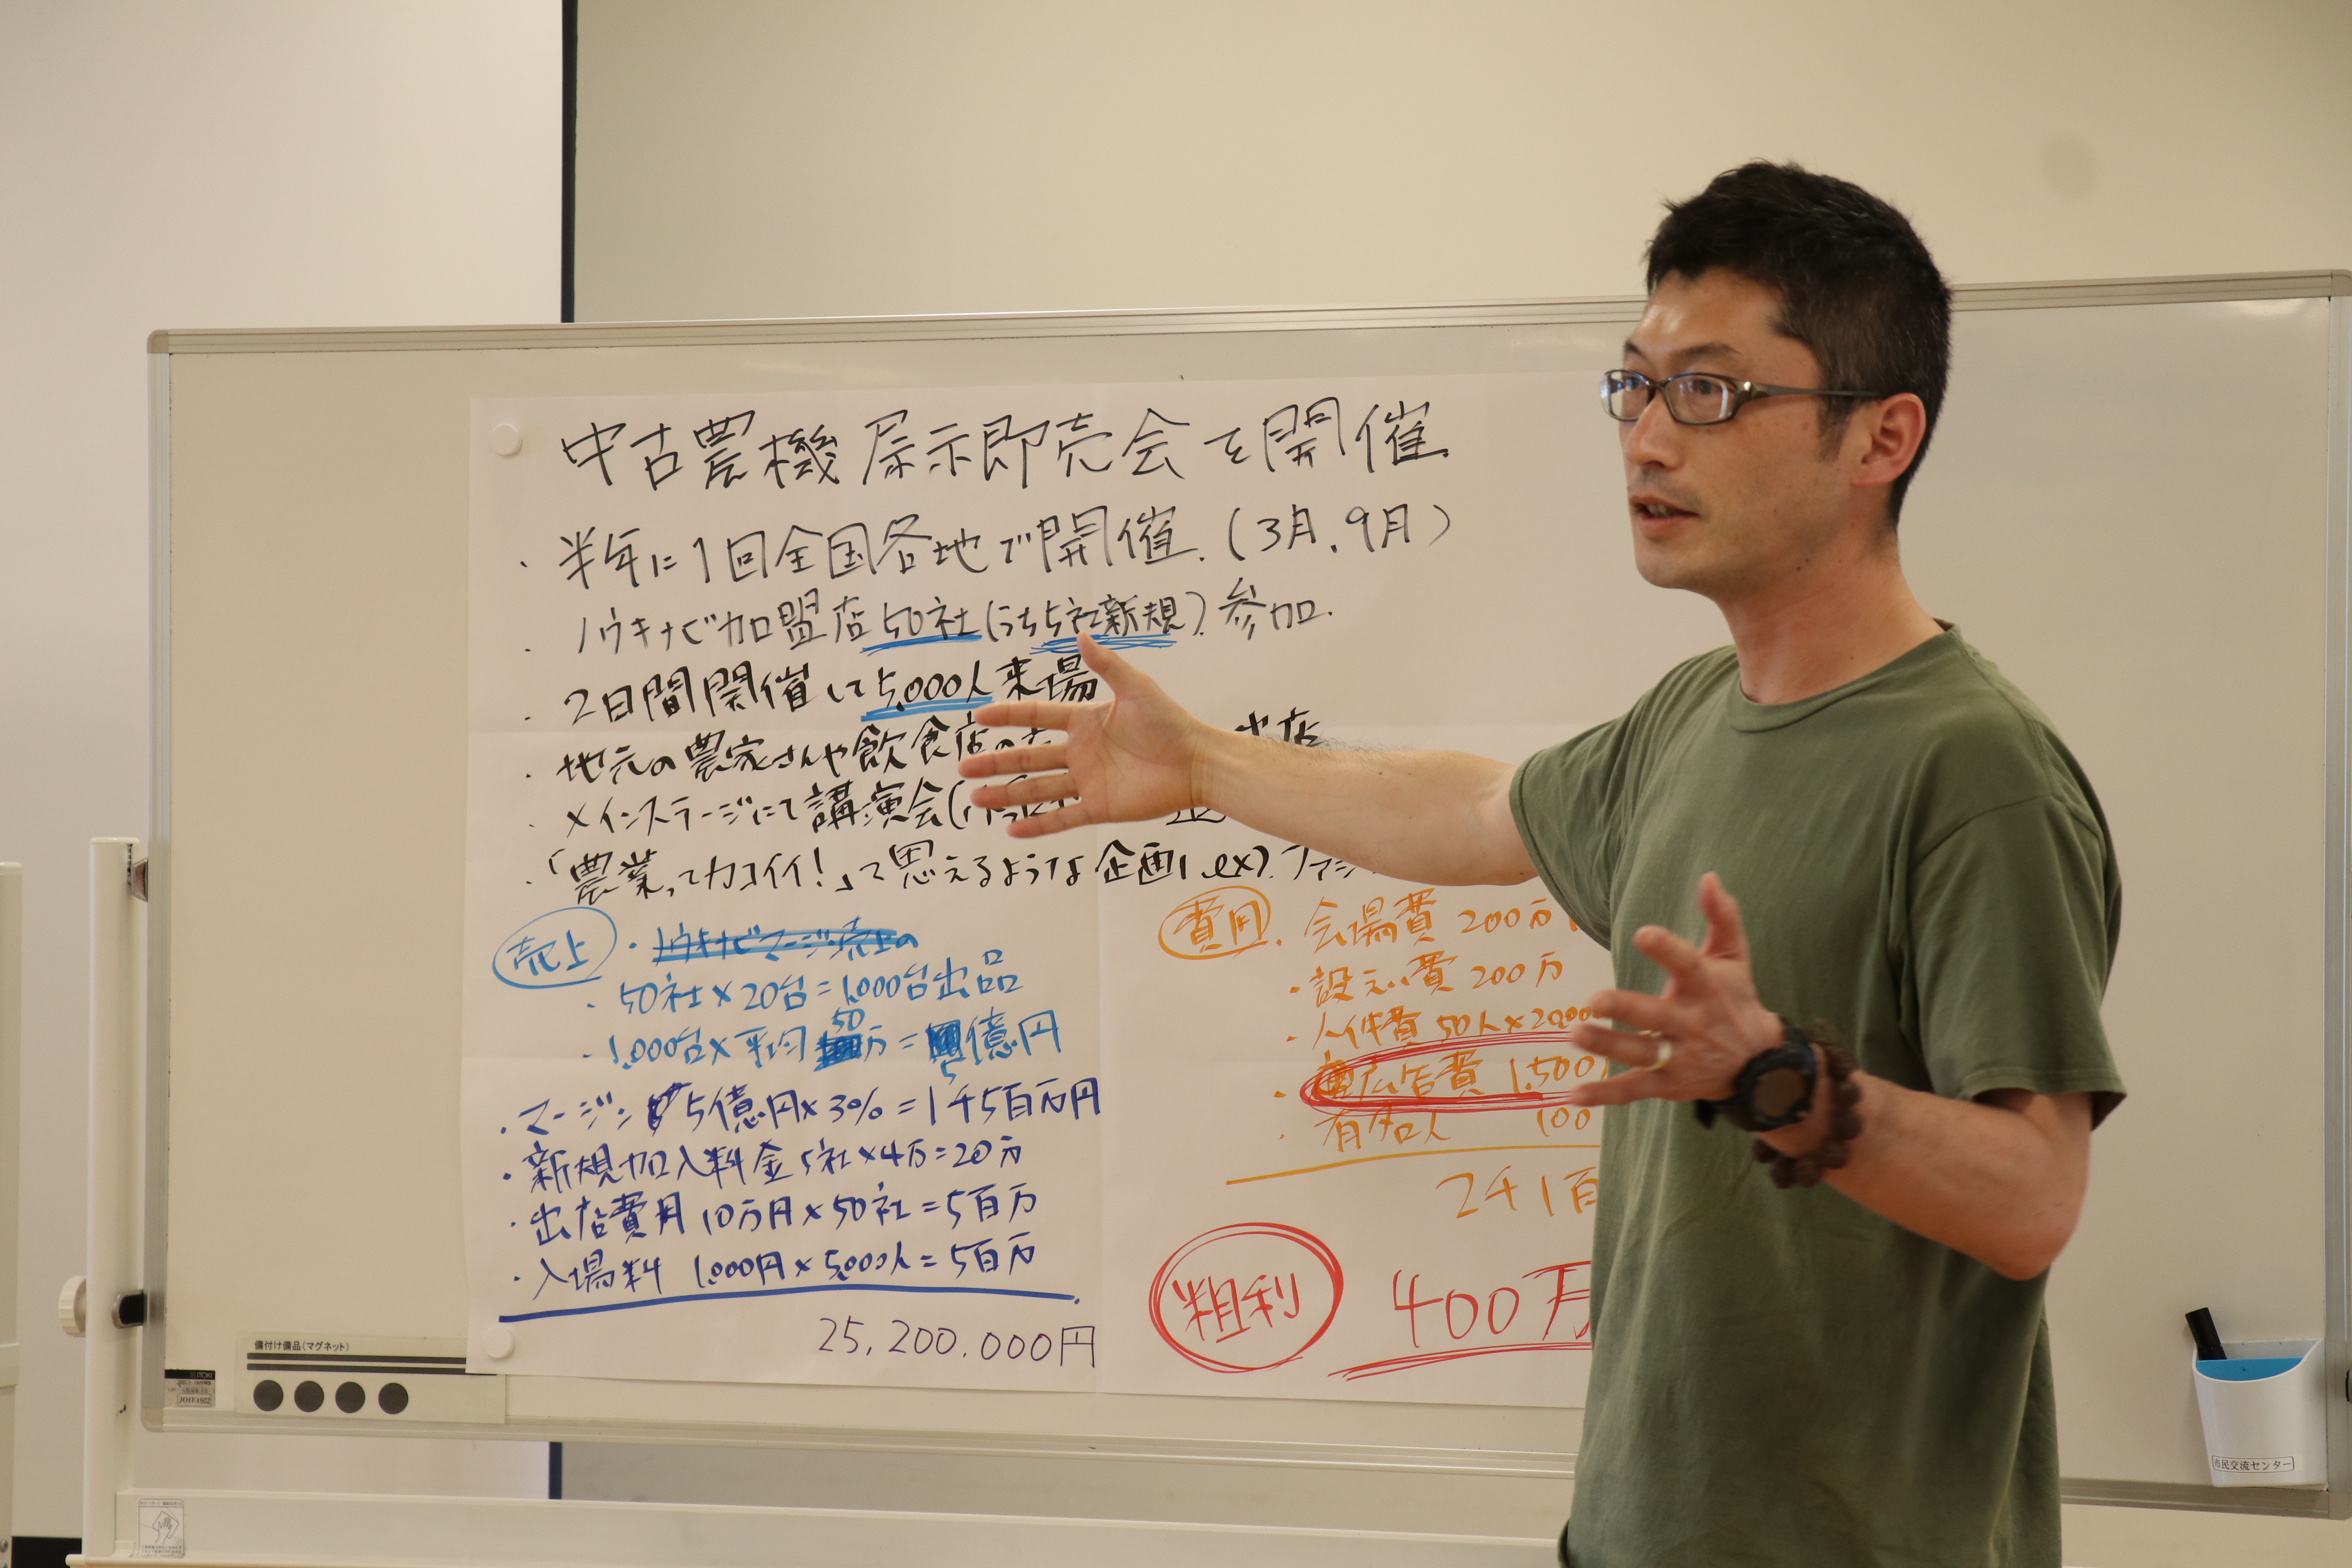 中古農機展示即売会を開催.
・半年に1回全国各地で開催.(3月、9月)
・ノウキナビ加盟店50社(うち5社新規)参加.
・2日間開催して5,000人来場
・地元の農家さんや飲食店の 出店
・メインステージにて講演会(
・「農業ってカコイイ!」って思えるような企画 ex). ファッ
売上 ・ノウキナビマージン売上の
・50社×20台=1,000台出品
・1,000台×平均50万=5億円
・マージン 5億円×3%=1千5百万円
・新規加入料金 5社×4万=20万
・出店費用 10万円×50社=5百万
・入場料 1,000円×5,000人=5百万
25,200,000円
費用 ・会場費 200万
・設えい費 200万
・人件費 50人×20,000
・広告費 1,500
・有名人 100
2千1百
粗利 400万
備付け備品(マグネット)
市民交流センター